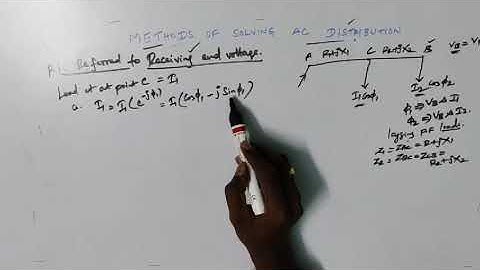 METHODS OF SOLVING AC DISTRIBUTION
Referred to Receiving end voltage.
Load at at point C = I₁
a. I₁ = I₁(e^-jφ₁) = I₁(cosφ₁ - jsinφ₁)
A R₁+jX₁ C R₂+jX₂ B
V_B = V
I₁cosφ₁
I₂cosφ₂
φ₁ ⇒ V_B & I₁
φ₂ ⇒ V_B & I₂
lagging PF loads.
Z₁ = Z_AC = R₁+jX₁
Z₂ = Z_CB =
R₂+jX₂